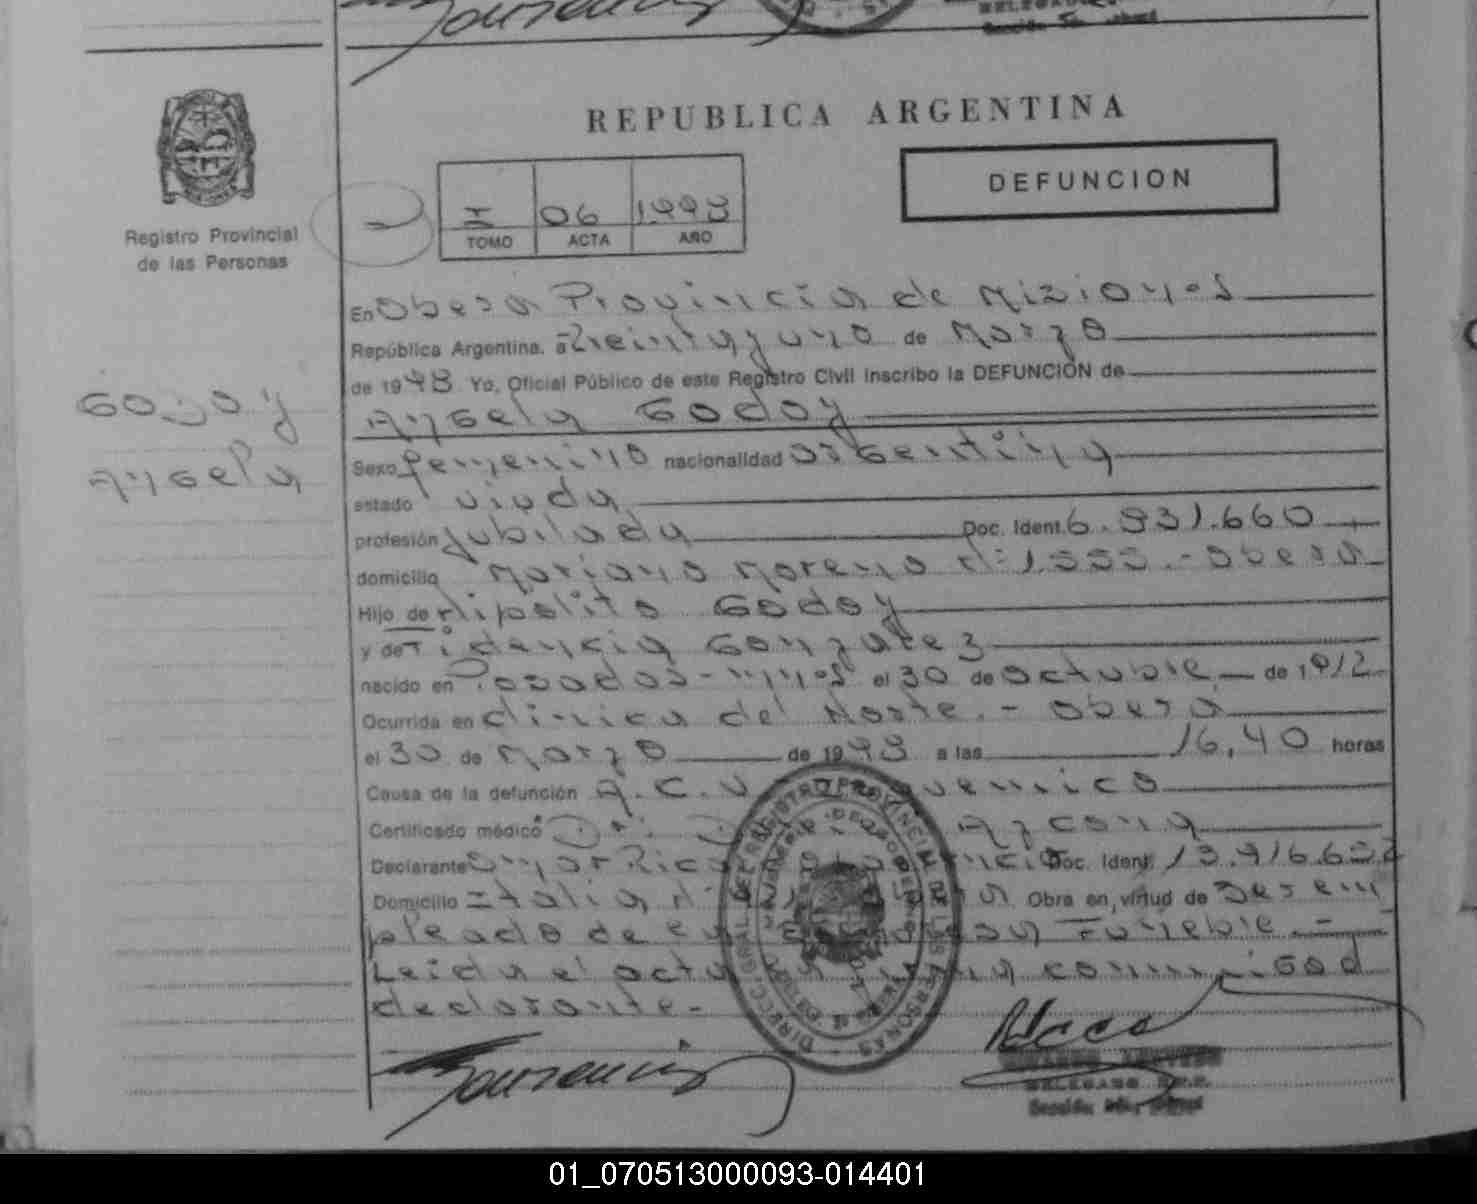 REPUBLICA ARGENTINA
DEFUNCION
Registro Provincial
de las Personas
I 06 1993
TOMO ACTA AÑO
En Obera Provincia de Misiones
República Argentina, a Treinta y uno de Marzo
de 1993 Yo, Oficial Público de este Registro Civil inscribo la DEFUNCION de
Godoy
Angela
Angela Godoy
Sexo femenino nacionalidad argentina
estado viuda
profesión jubilada Doc. Ident. 6.931.660
domicilio Mariano Moreno Nº 1.555.- Obera
Hijo de Hipolito Godoy
y de Fidencia Gonzalez
nacido en Posadas - Mnes el 30 de Octubre de 1912
Ocurrida en Clinica del Norte.- Obera
el 30 de Marzo de 1993 a las 16,40 horas
Causa de la defunción A.C.V.
Certificado médico Azcona
Declarante Omar Doc. Ident. 13.916.652
Domicilio Italia Obra en virtud de Ser em
pleado de Funebre.-
Leida el acta conmigo el
declarante.-
DIREC. GRAL. DEL REGISTRO PROVINCIAL DE LAS PERSONAS
DELEGADO R.P.P.
01_070513000093-014401